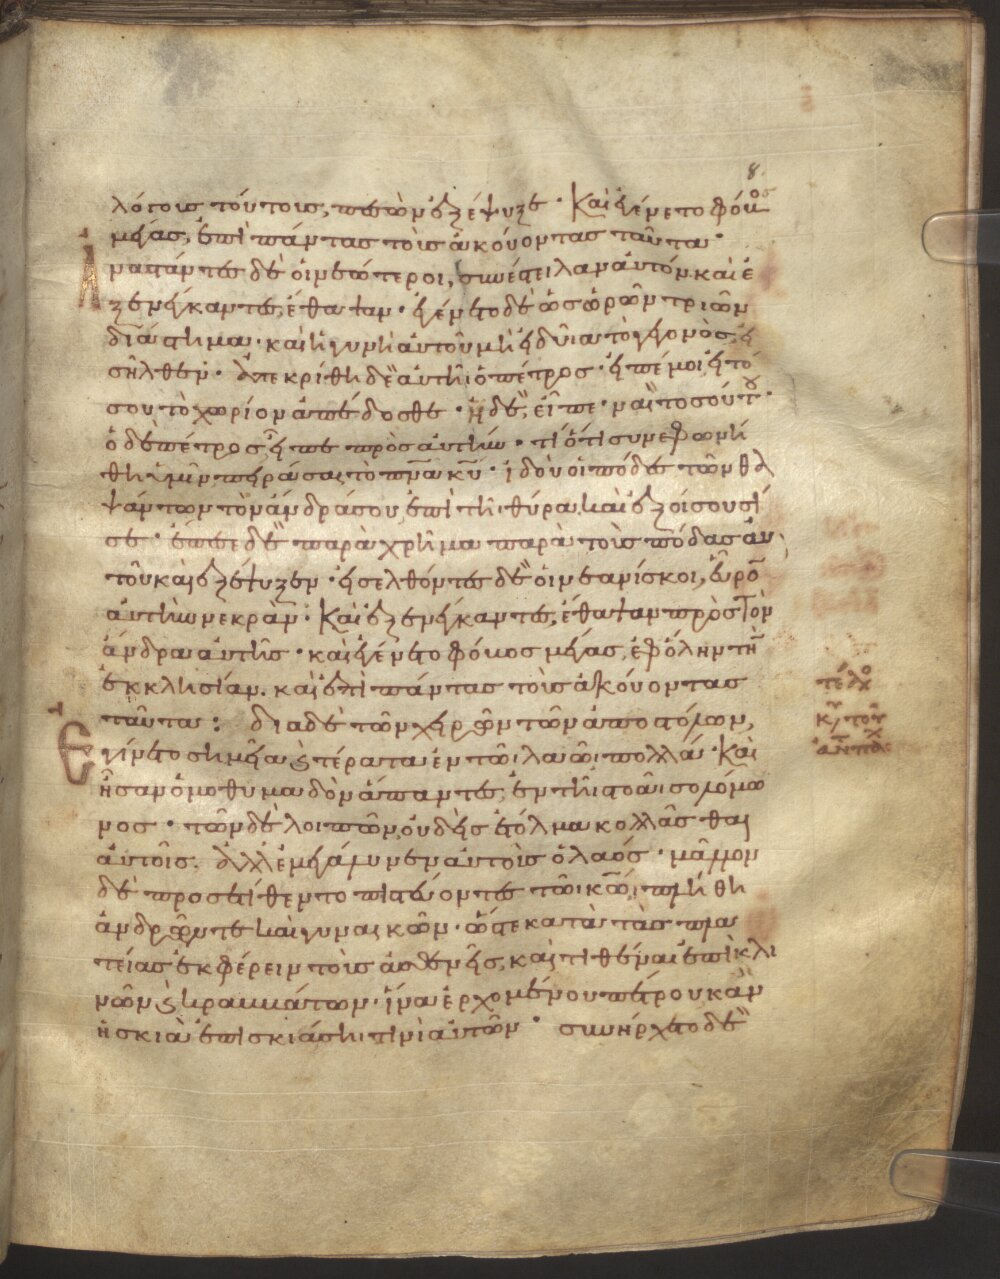 8
λόγοις τούτοις, πεσὼν ἐξέψυξε · Καὶ ἐγένετο φόβος
μέγας, ἐπὶ πάντας τοὺς ἀκούοντας ταῦτα ·
Ἀναστάντες δὲ οἱ νεώτεροι, συνέστειλαν αὐτὸν καὶ ἐ
ξενέγκαντες, ἔθαψαν · ἐγένετο δὲ ὡς ὡρῶν τριῶν
διάστημα · καὶ ἡ γυνὴ αὐτοῦ μὴ εἰδυῖα τὸ γεγονὸς, εἰ
σῆλθεν · ἀπεκρίθη δὲ αὐτῇ ὁ πέτρος · εἰπέ μοι, εἰ το
σούτου τὸ χωρίον ἀπέδοσθε · ἡ δὲ, εἶπε · ναὶ τοσούτου ·
ὁ δὲ πέτρος, εἶπε πρὸς αὐτήν · τί ὅτι συνεφωνή
θη ὑμῖν πειράσαι τὸ πνα κυ · ἰδοὺ οἱ πόδες τῶν θα
ψάντων τὸν ἄνδρα σου, ἐπὶ τῇ θύρα, καὶ ἐξοίσουσί
σε · ἔπεσε δὲ παρὰ χρῆμα παρὰ τοὺς πόδας αὐ
τοῦ καὶ ἐξέψυξεν · εἰσελθόντες δὲ οἱ νεανίσκοι, εὗρον
αὐτὴν νεκράν · Καὶ ἐξενέγκαντες, ἔθαψαν πρὸς τὸν
ἄνδρα αὐτῆς · καὶ ἐγένετο φόβος μέγας, ἐφ ὅλην τὴν
ἐκκλησίαν. καὶ ἐπὶ πάντας τοὺς ἀκούοντας
ταῦτα : διὰ δὲ τῶν χειρῶν τῶν ἀποστόλων,
Ἐγίνετο σημεῖα ϗ τέρατα ἐν τῶι λαῶι πολλά · Καὶ
ἦσαν ὁμοθυμαδὸν ἅπαντες, ἐν τῆι στοᾶι σολομῶ
νος · τῶν δὲ λοιπῶν, οὐδεὶς ἐτόλμα κολλᾶσθαι
αὐτοῖς. ἀλλ' ἐμεγάλυνεν αὐτοὺς ὁ λαός · μᾶλλον
δὲ προσετίθεντο πιστεύοντες τῶι κωι, πλήθη
ἀνδρῶν τε καὶ γυναικῶν · ὥστε κατὰ τὰς πλα
τείας ἐκφέρειν τοὺς ἀσθενεῖς, καὶ τιθέναι ἐπὶ κλι
νῶν ϗ κραμμάτων · ἵνα ἐρχομένου πέτρου κἂν
ἡ σκιὰ ἐπισκιάση τινὶ αὐτῶν · συνήρχετο δὲ
τέλος